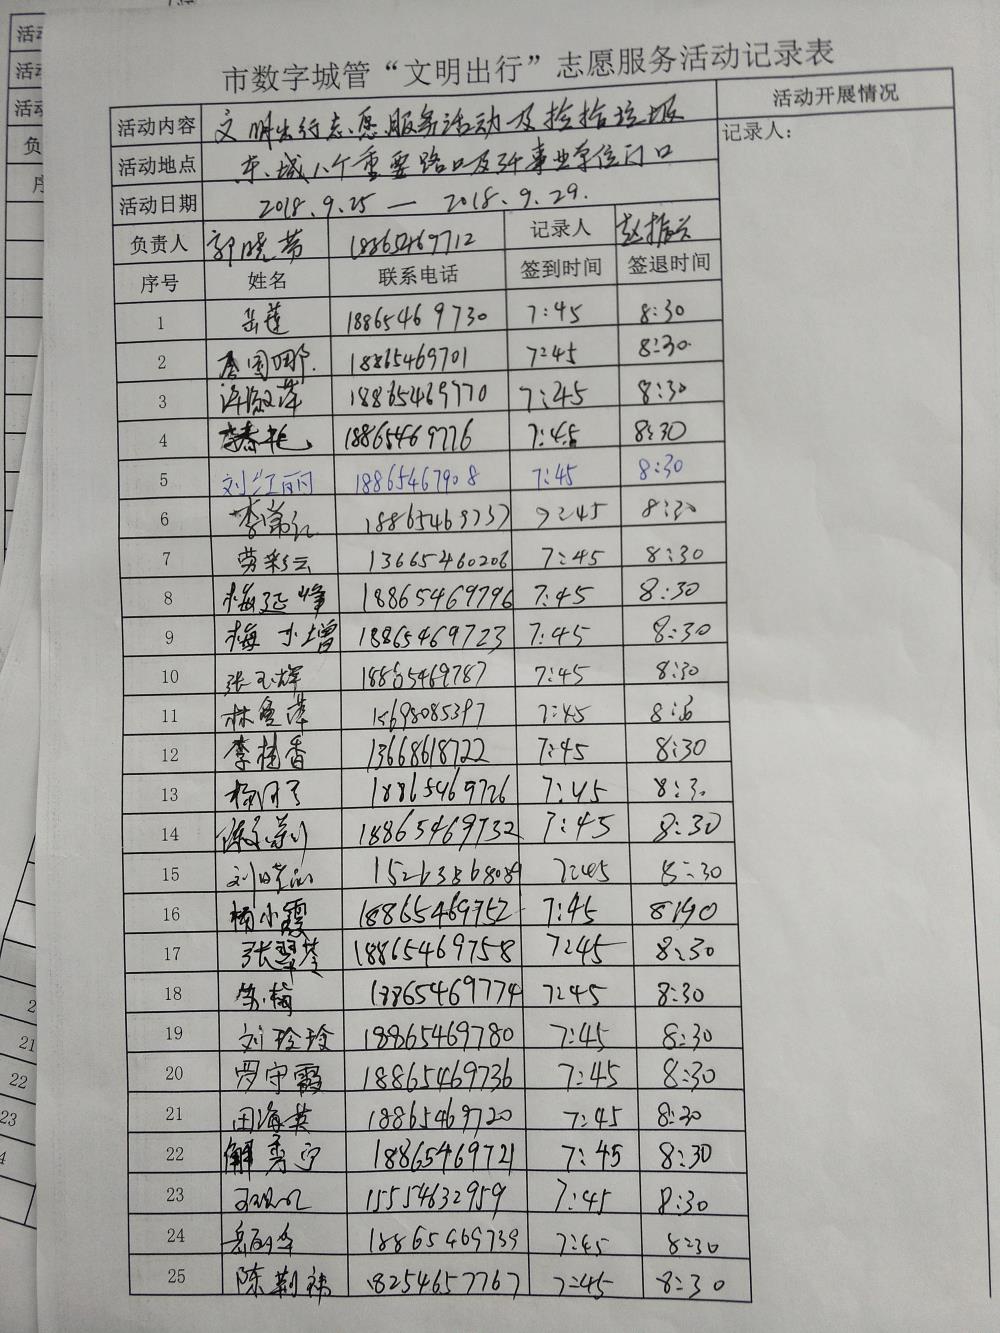 市数字城管“文明出行”志愿服务活动记录表
活动内容 文明出行志愿服务活动及捡拾垃圾 活动开展情况
活动地点 东城八个重要路口及 事业单位门口 记录人：
活动日期 2018.9.25 — 2018.9.29.
负责人 郭晓芳 18865469712 记录人 赵振兴
序号 姓名 联系电话 签到时间 签退时间
1 岳莲 18865469730 7:45 8:30
2 唐国娜 18865469701 7:45 8:30
3 18865469770 7:45 8:30
4 18865469776 7:45 8:30
5 刘江丽 18865467908 7:45 8:30
6 李 红 18865469737 7:45 8:30
7 劳彩云 13665460206 7:45 8:30
8 梅延峰 18865469796 7:45 8:30
9 梅小增 18865469723 7:45 8:30
10 张玉辉 18865469787 7:45 8:30
11 林 萍 15698085397 7:45
12 李桂香 13668618722 7:45 8:30
13 18865469726 7:45 8:30
14 陈 18865469732 7:45 8:30
15 刘晓 15263868089 7:45 8:30
16 杨小霞 18865469752 7:45
17 张翠莲 18865469758 7:45 8:30
18 梅 18865469774 7:45 8:30
19 刘玲玲 18865469780 7:45 8:30
20 罗守霞 18865469736 7:45 8:30
21 田海英 18865469720 7:45 8:30
22 解秀宁 18865469721 7:45 8:30
23 15554632959 7:45 8:30
24 18865469739 7:45 8:30
25 陈荆祎 18254657767 7:45 8:30
活动
活动
活动
负
序
2
21
22
23
4